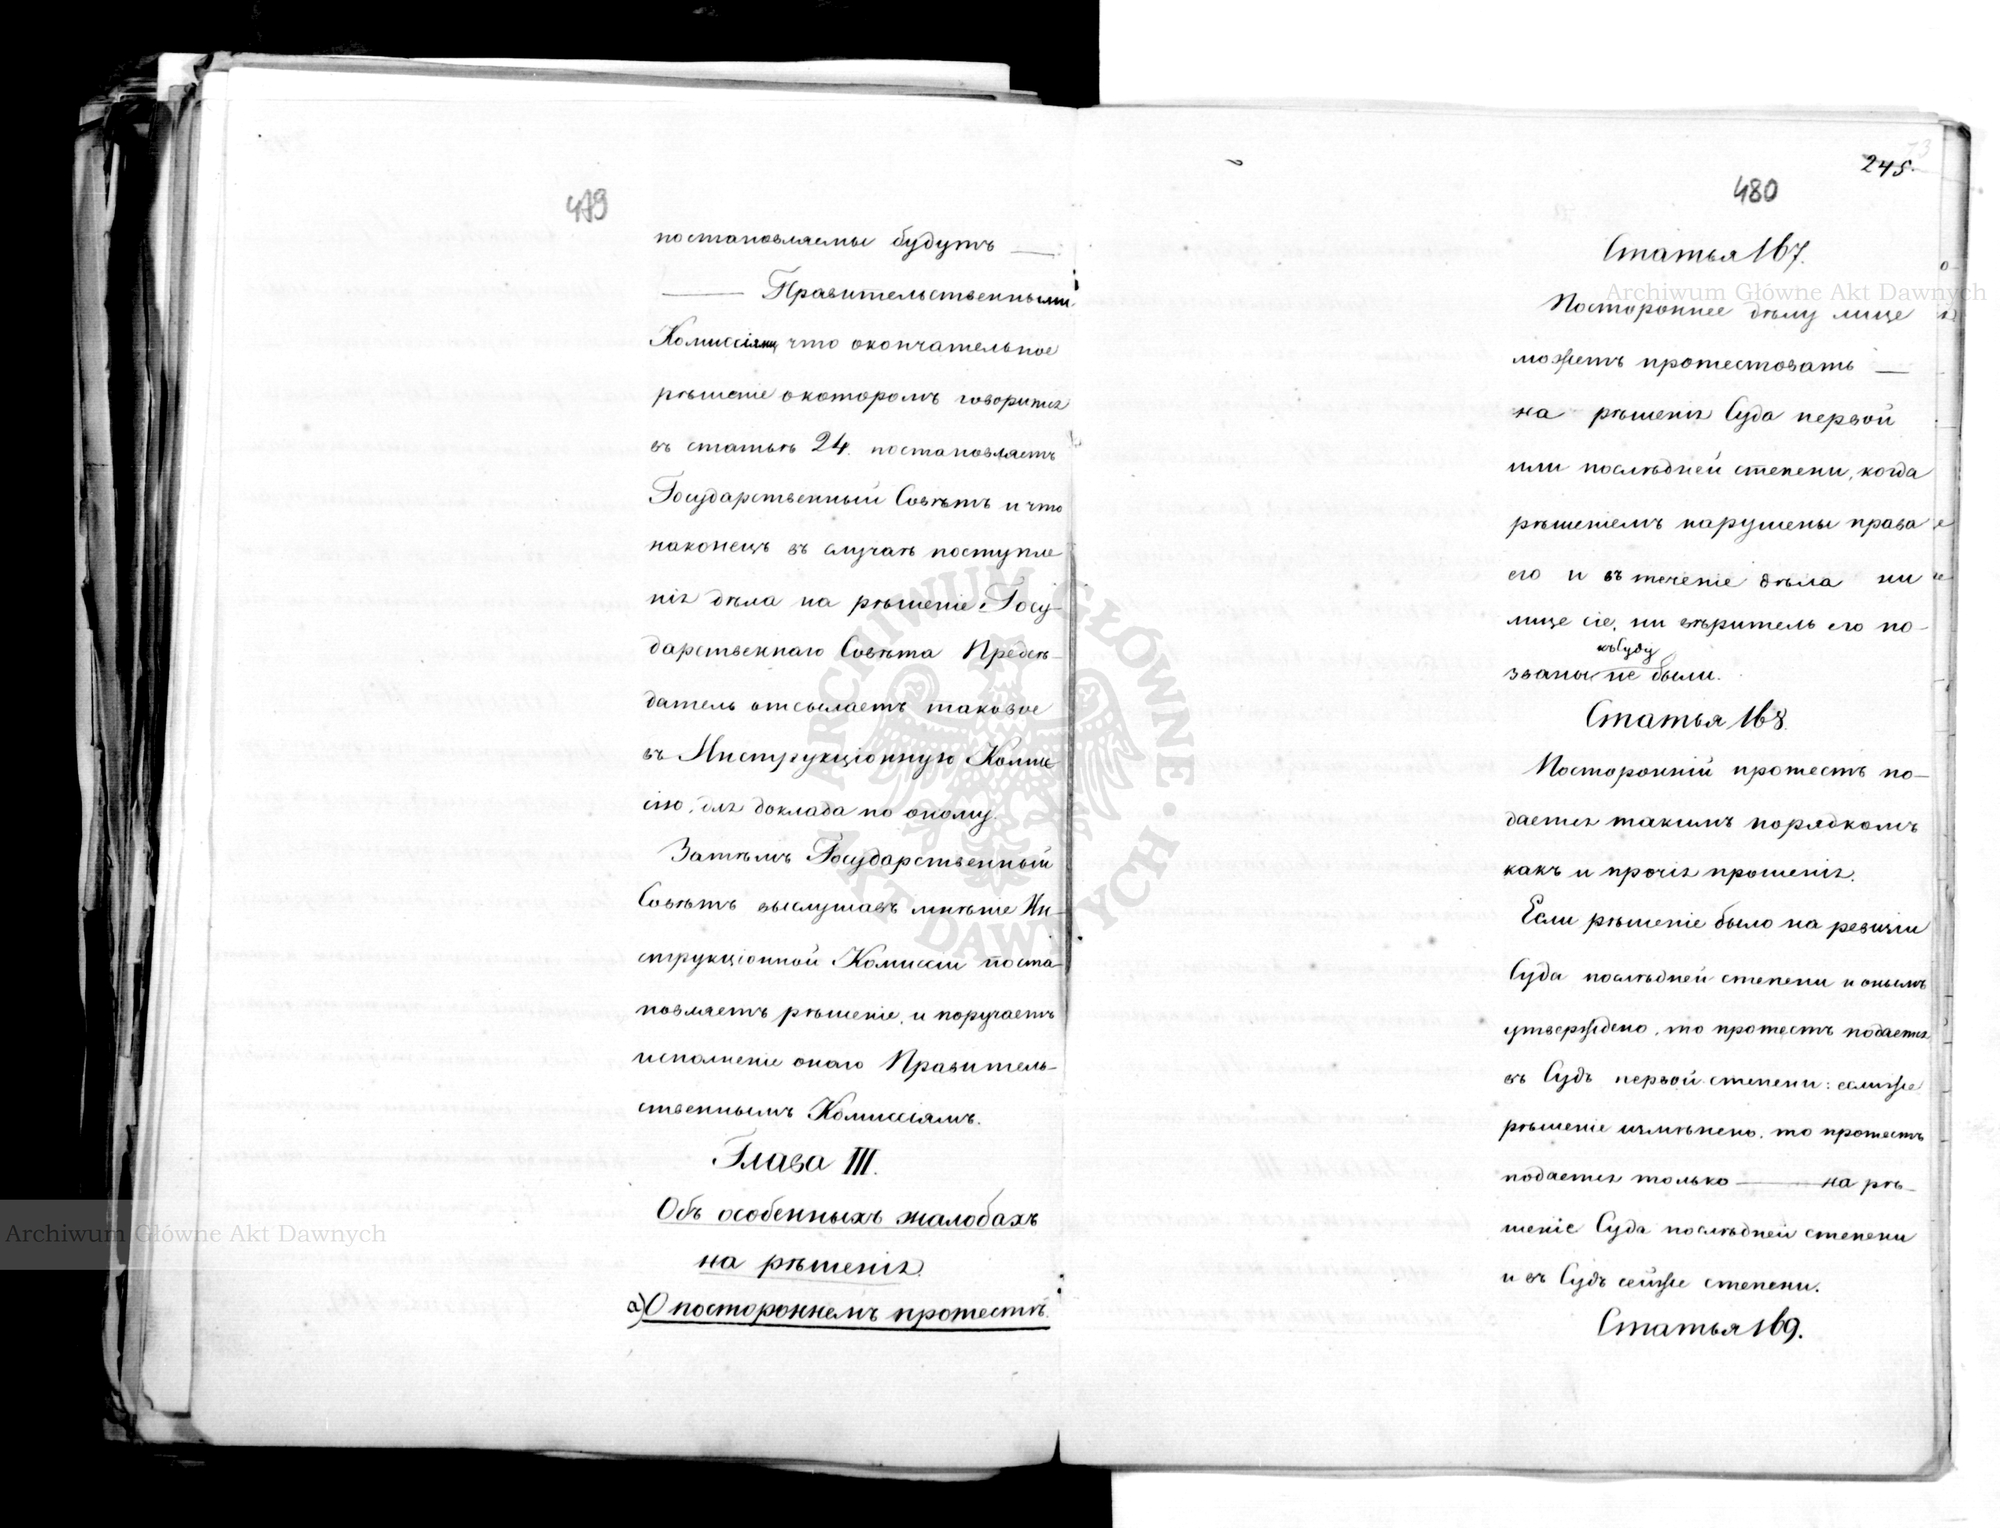 479
постановляемы будутъ —
— Правительственными
Комиссіями, что окончательное
рѣшеніе о которомъ говорится
въ статьѣ 24. постановляетъ
Государственный Совѣтъ и что
наконецъ въ случаѣ поступле
нія дѣла на рѣшеніе Госу-
дарственнаго Совѣта Предсѣ-
датель отсылаетъ таковое
въ Инструкціонную Комми
сію, для доклада по оному.
Затѣмъ Государственный
Совѣтъ выслушавъ мнѣніе Ин-
струкціонной Комиссіи поста-
новляетъ рѣшеніе, и поручаетъ
исполненіе онаго Правитель-
ственнымъ Комиссіямъ.
Глава III.
Объ особенныхъ жалобахъ
на рѣшенія.
а) О постороннемъ протестѣ.
245.
480
Статья 167.
Постороннее дѣлу лице
можетъ протестовать —
на рѣшенія Суда первой
или послѣдней степени, когда
рѣшеніемъ нарушены права
его и въ теченіе дѣла ни
лице сіе, ни вѣритель его по-
къ Суду
званы не были.
Статья 168.
Посторонній протестъ по-
дается такимъ порядкомъ
какъ и прочія прошенія.
Если рѣшеніе было на ревизіи
Суда послѣдней степени и онымъ
утверждено, то протестъ подается
въ Судъ первой степени: если же
рѣшеніе измѣнено, то протестъ
подается только — на рѣ-
шеніе Суда послѣдней степени
и въ Судъ сей же степени.
Статья 169.
Archiwum Główne Akt Dawnych
Archiwum Główne Akt Dawnych
ARCHIWUM GŁÓWNE AKT DAWNYCH